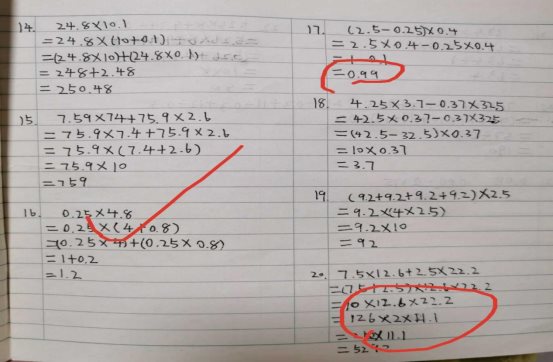 14. 24.8×10.1
=24.8×(10+0.1)
=(24.8×10)+(24.8×0.1)
=248+2.48
=250.48
15. 7.59×74+75.9×2.6
=75.9×7.4+75.9×2.6
=75.9×(7.4+2.6)
=75.9×10
=759
16. 0.25×4.8
=0.25×(4+0.8)
=(0.25×4)+(0.25×0.8)
=1+0.2
=1.2
17. (2.5-0.25)×0.4
=2.5×0.4-0.25×0.4
=1-0.1
=0.99
18. 4.25×3.7-0.37×325
=42.5×0.37-0.37×325
=(42.5-32.5)×0.37
=10×0.37
=3.7
19 (9.2+9.2+9.2+9.2)×2.5
=9.2×(4×2.5)
=9.2×10
=92
20. 7.5×12.6+2.5×22.2
=(7.5+2.5)×12.6×22.2
=10×12.6×22.2
=126×2×11.1